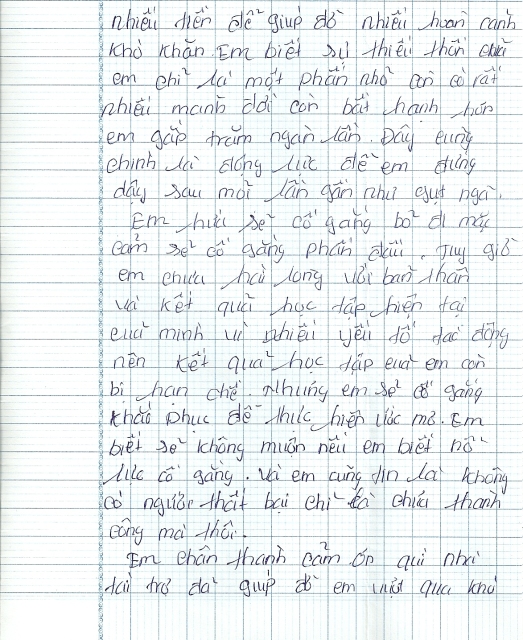 nhiều tiền để giúp đỡ nhiều hoàn cảnh
khó khăn. Em biết sự thiếu thốn của
em chỉ là một phần nhỏ còn có rất
nhiều mảnh đời còn bất hạnh hơn
em gấp trăm ngàn lần. Đây cũng
chính là động lực để em đứng
dậy sau mỗi lần gần như gụt ngã.
Em hứa sẽ cố gắng bỏ đi mặc
cảm sẽ cố gắng phấn đấu. Tuy giờ
em chưa hài lòng với bản thân
và kết quả học tập hiện tại
của mình vì nhiều yếu tố tác động
nên kết quả học tập của em còn
bị hạn chế. Nhưng em sẽ cố gắng
khắc phục để thực hiện ước mơ. Em
biết sẽ không muộn nếu em biết nỗ
lực cố gắng. Và em cũng tin là không
có người thất bại chỉ là chưa thành
công mà thôi.
Em chân thành cảm ơn quí nhà
tài trợ đã giúp đỡ em vượt qua khó